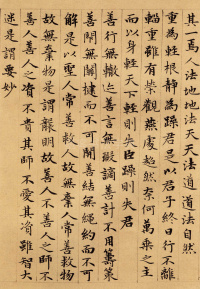 其一焉人法地地法天天法道道法自然
重為輕根靜為躁君是以君子終日行不離
輜重雖有榮觀燕處超然奈何萬乘之主
而以身輕天下輕則失臣躁則失君
善行無轍迹善言無瑕謫善計不用籌策
善閉無關楗而不可開善結無繩約而不可
解是以聖人常善救人故無棄人常善救物
故無棄物是謂襲明故善人不善人之師不
善人善人之資不貴其師不愛其資雖智大
迷是謂要妙